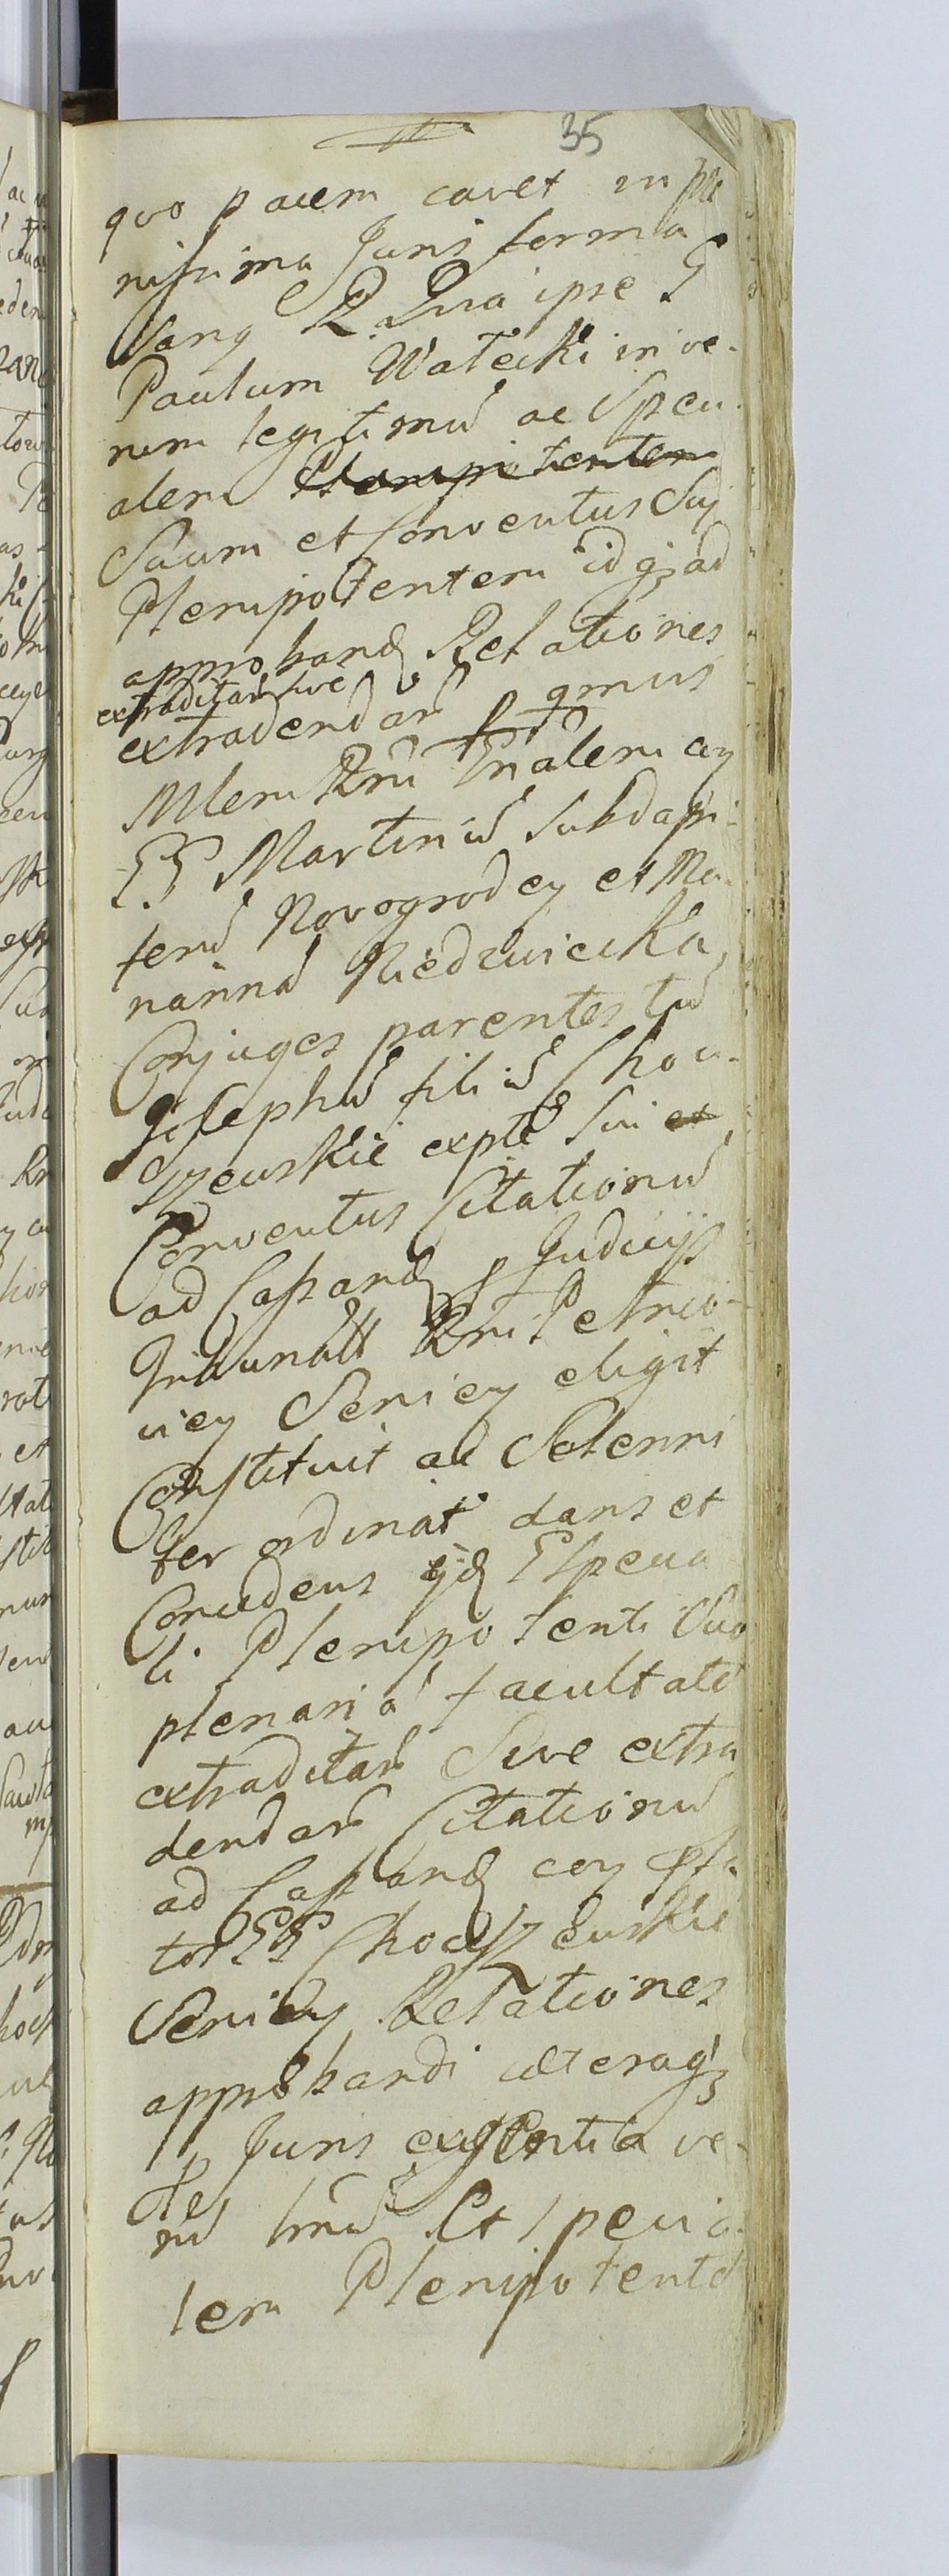 35
quo pacem cavet in ple
nissima Juris forma
Sang R. Quia ipse G
Paulum Watecki in ve-
rum legitimu ac Speci-
alem Plenipotentem
Suum et Conventus Sui
Plenipotentem idq; ad
approband Relationes
extraditar sive
extradendar p gnrus
Mlem Rni cum
GG Martinu Subdapi-
feru Novogrodey et Ma-
rianna Niedzwiecka
Conjuges parentes tu
Josephu filiu Chor-
szewskie expte sui et
Conventus Citationu
ad Cassand p Judicijs
Tribunall Rni Petrico-
viey Seriey eligit
Constituit ac Solenni
ter ordinat dans et
Concedens G Specia
li Plenipotenti Suo
plenaria facultate
extraditar Sive extra
dendar Citationu
ad Cassand con
tos GG Choczszewskie
Seriey Relationes
approbandi ceteraq;
Juris exigentia ve-
ru Et specia
lem Plenipotente